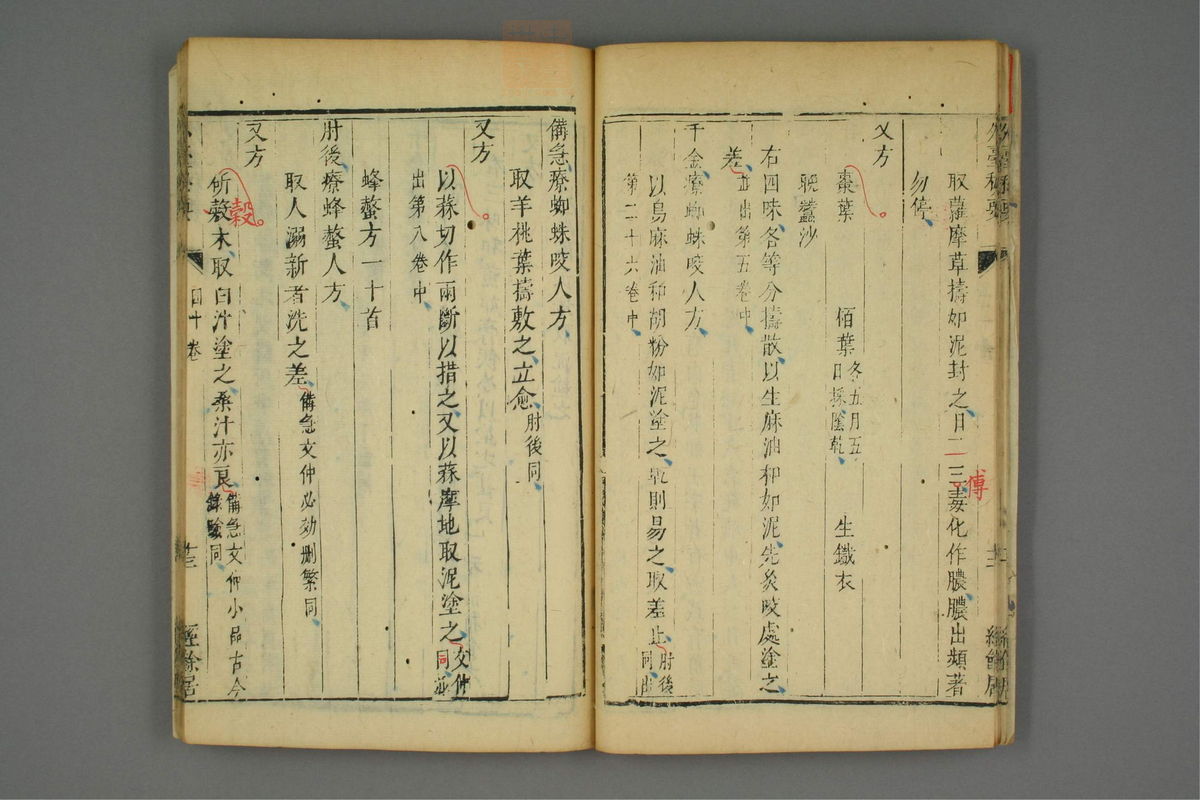 取蘿摩草擣如泥封之日二三毒化作膿膿出頻著
傅
勿停
又方
棗葉 佰葉冬五月五日採陰乾 生鐵衣
晩蠶沙
右四味各等分擣散以生麻油和如泥先灸咬處塗之
差並出第五卷中
千金療蜘蛛咬人方
以烏麻油和胡粉如泥塗之乾則易之取差止肘後同出
第二十六卷中
備急療蜘蛛咬人方
取羊桃葉擣敷之立愈肘後同
又方
以蒜切作兩斷以措之又以蒜摩地取泥塗之文仲同並
出第八卷中
蜂螫方一十首
肘後療蜂螫人方
取人溺新者洗之差備急文仲必効刪繁同
又方
斫榖木取白汁塗之桑汁亦良備急文仲小品古今錄驗同
穀
四十卷
十三
經餘居